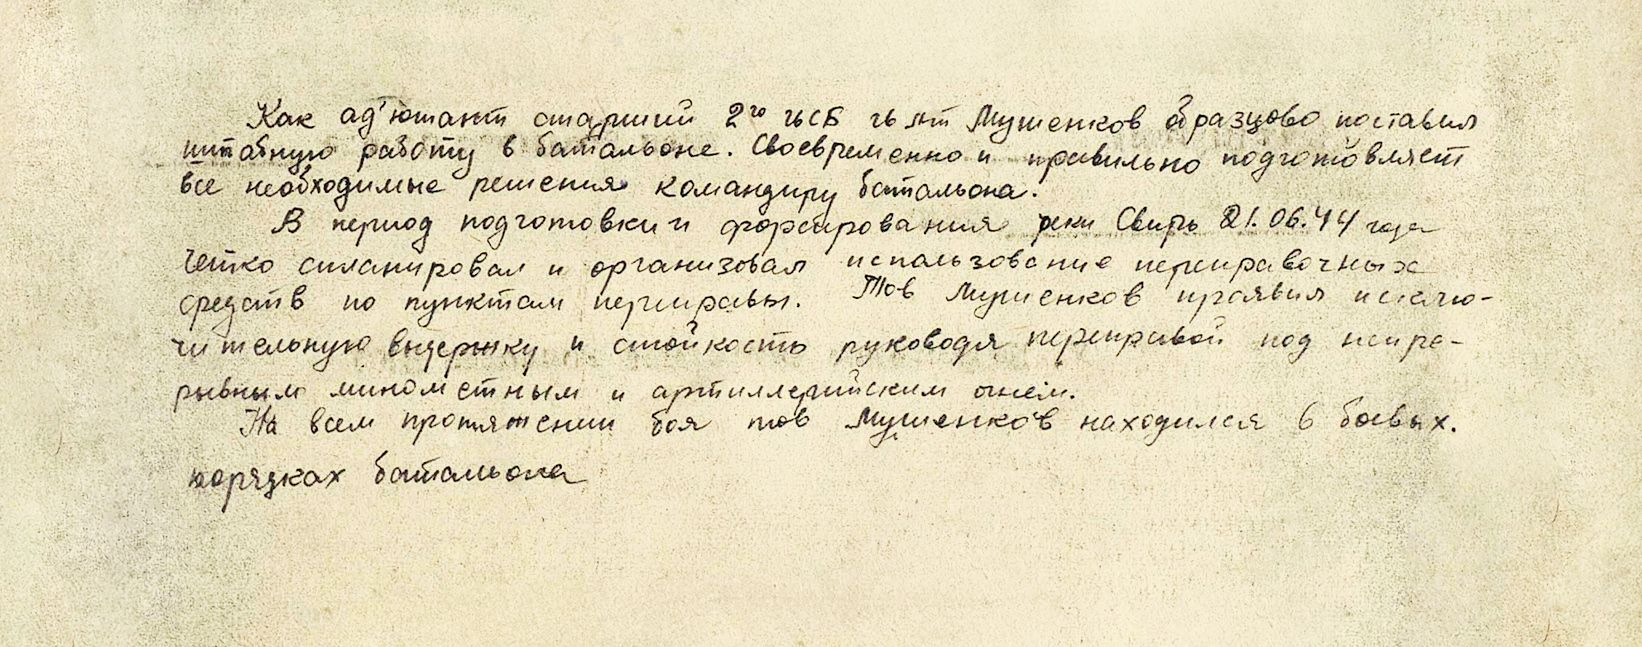 Как ад'ютант старший 2го гвСБ гв л-т Мушенков образцово поставил
штабную работу в батальоне. Своевременно и правильно подготовляет
все необходимые решения командиру батальона.
В период подготовки и форсирования реки Свирь 21.06.44 года
четко спланировал и организовал использование переправочных
средств по пунктам переправы. Тов Мушенков проявил исклю-
чительную выдержку и стойкость руководя переправой под непре-
рывным минометным и артиллерийским огнем.
На всем протяжении боя тов Мушенков находился в боевых.
порядках батальона